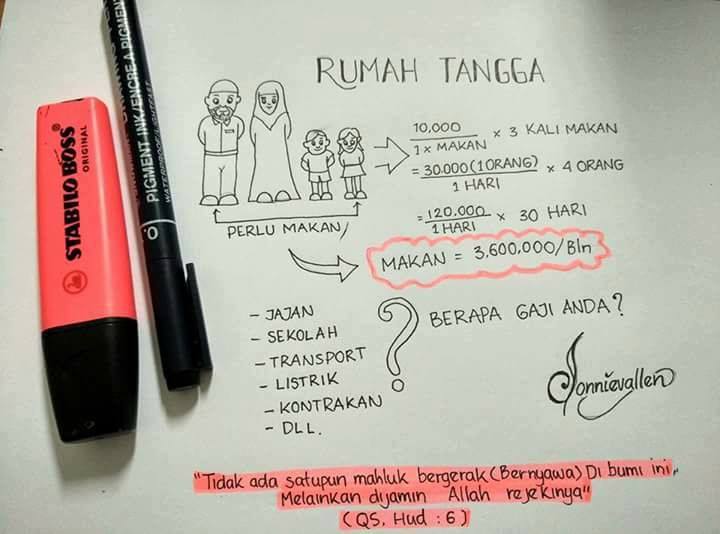 RUMAH TANGGA
10,000
1 x MAKAN
x 3 KALI MAKAN
= 30.000 (1 ORANG)
1 HARI
x 4 ORANG
= 120.000
1 HARI
x 30 HARI
PERLU MAKAN
MAKAN = 3,600,000/Bln
- JAJAN
- SEKOLAH
- TRANSPORT
- LISTRIK
- KONTRAKAN
- DLL.
?
BERAPA GAJI ANDA?
Jonnievallen
"Tidak ada satupun mahluk bergerak (Bernyawa) Di bumi ini,
Melainkan dijamin Allah rejekinya"
(QS. Hud : 6)
STABILO BOSS
ORIGINAL
PIGMENT INK/ENCRE A PIGMENT